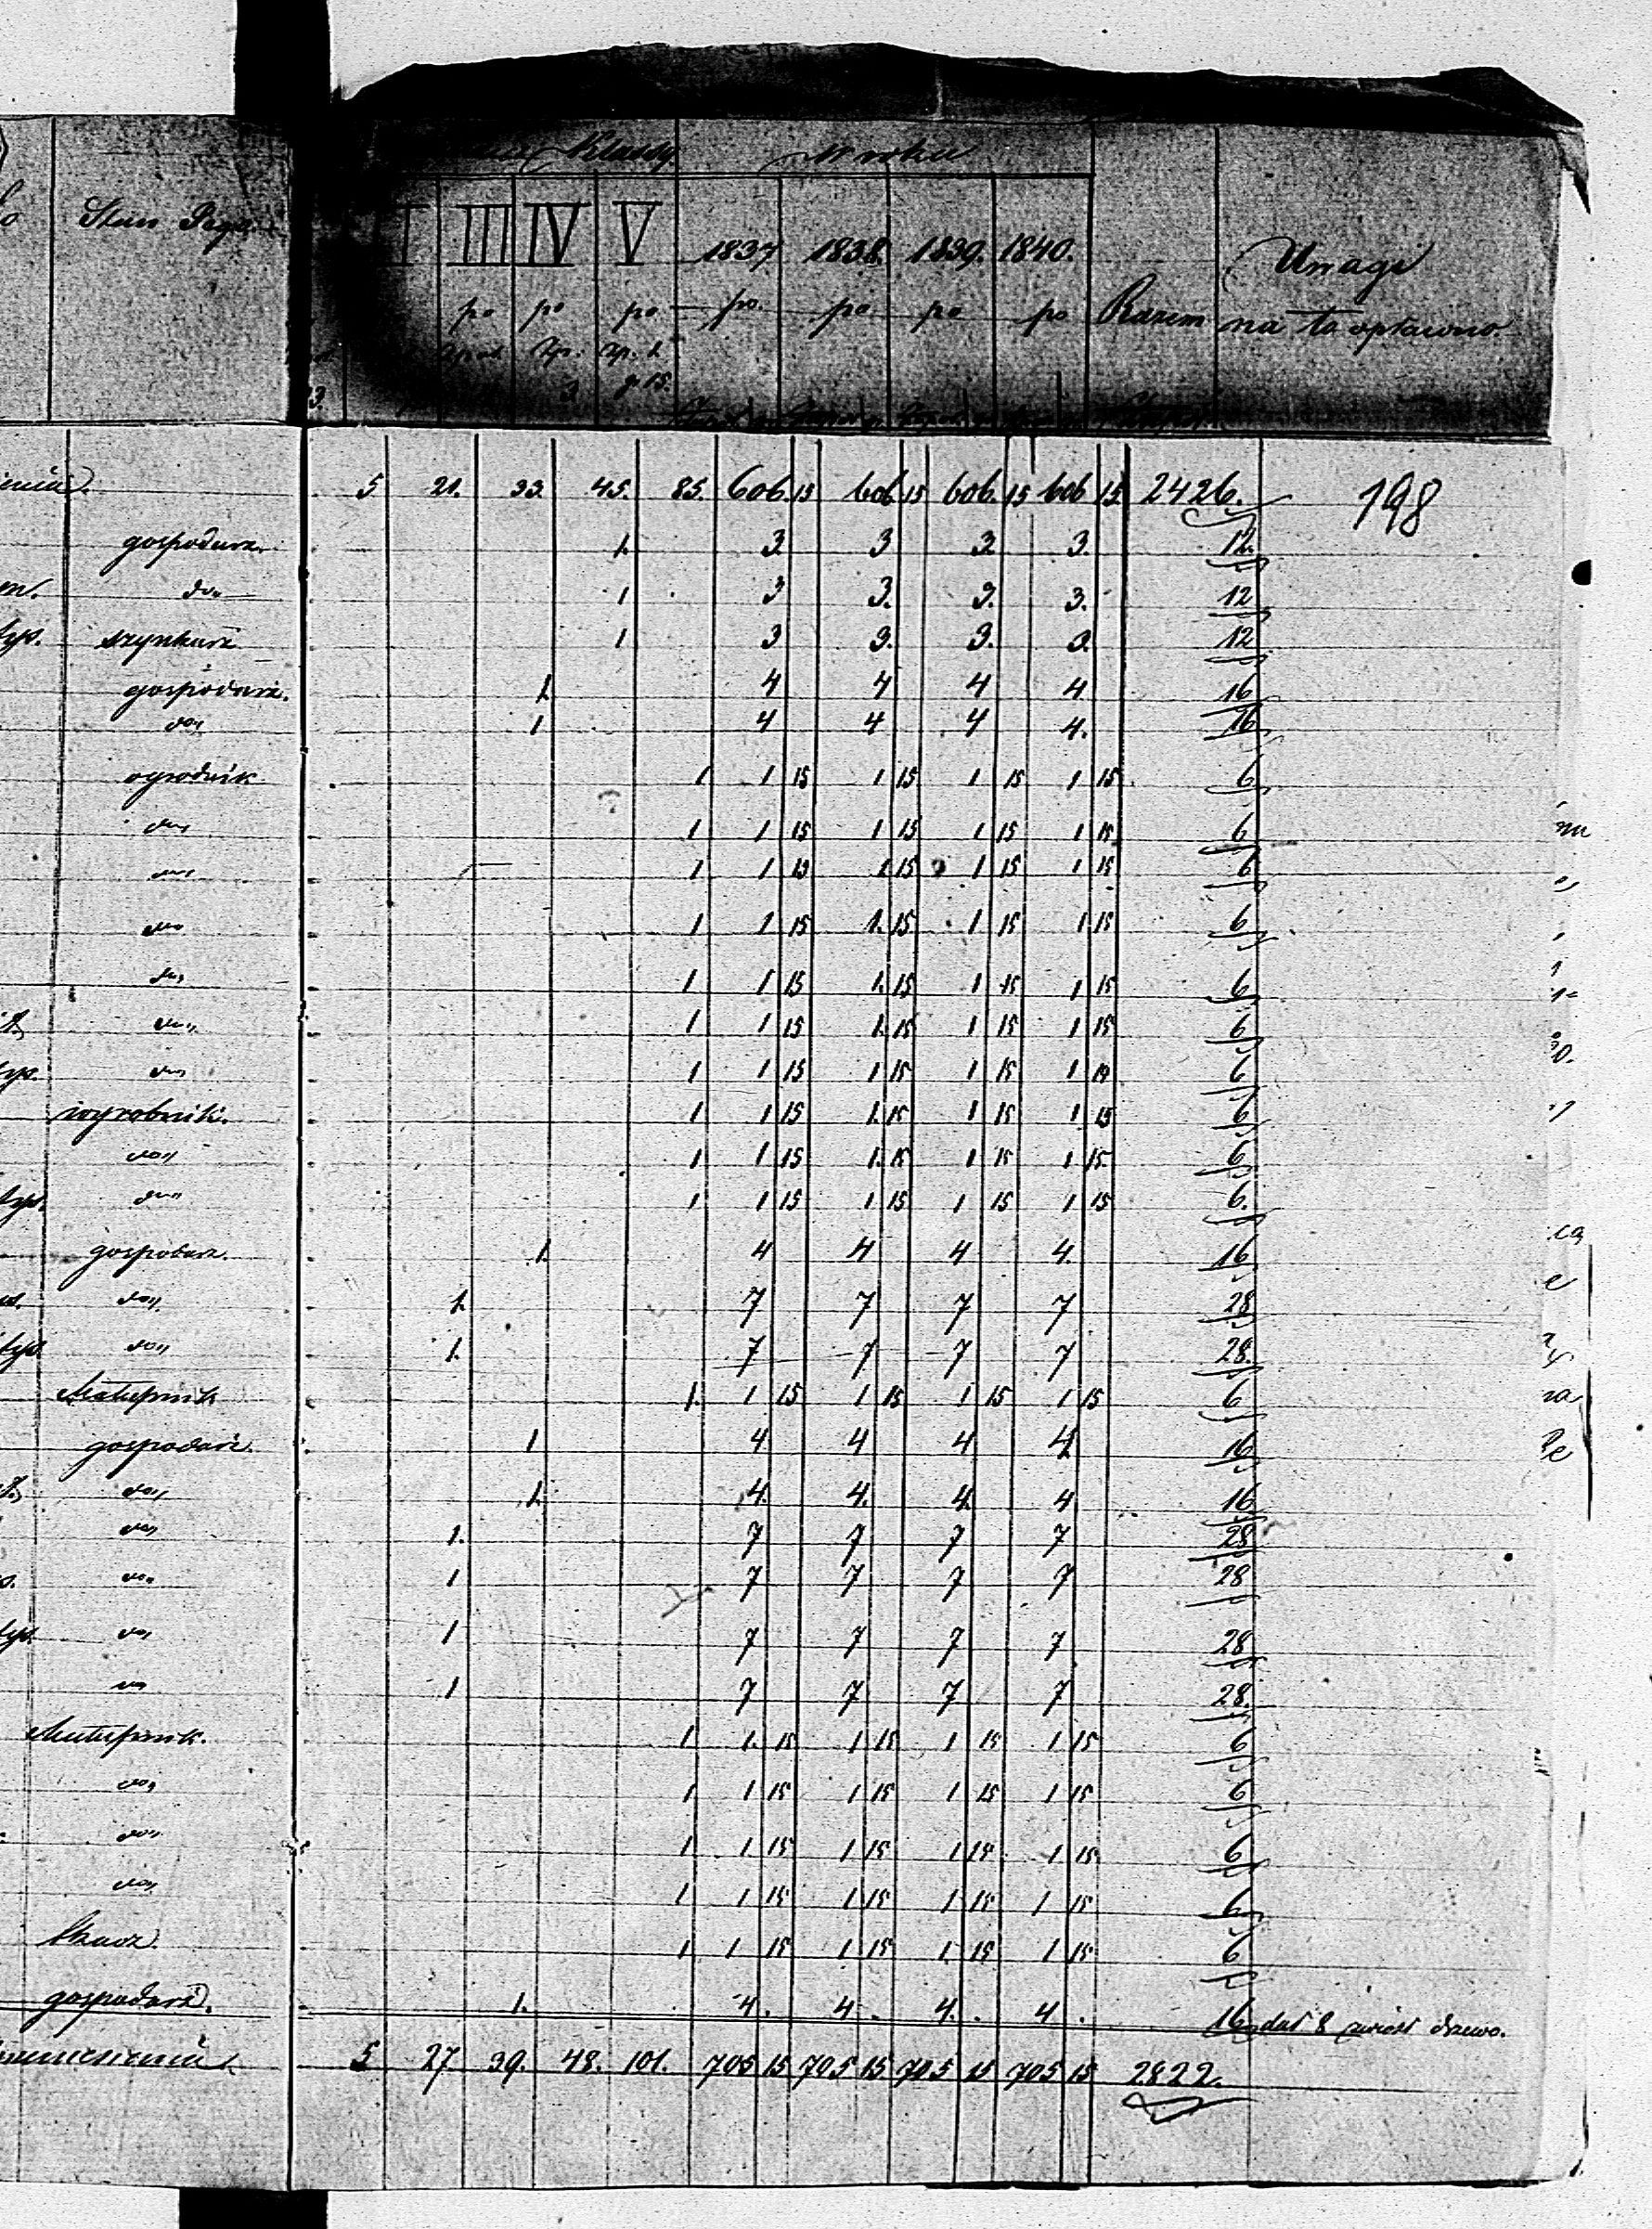 Klassy w roku
Stan III IV V 1837 1838. 1839. 1840. Uwagi
po po po po. po po po Razem na to opłacono.
złp. złp. 1
3 g. 15.
5 21. 33. 45. 85. 606. 15 606 15 606. 15 606 15 2426. 198
gospodarz. 1. 3. 3 3 3. 12.
do 1 3 3. 3. 3. 12
typ. szynkarz 1 3 3. 3. 3. 12
gospodarz. 1 4 4 4 4 16
do 1 4 4 4 4. 16
ogrodnik 1 1 15 1 15 1 15 1 15 6
do 1 1 15 1 15 1 15 1 15 6
do 1 1 15 1 15 1 15 1 15 6
do 1 1 15 1. 15 1 15 1 15 6
do 1 1 15 1. 15 1 15 1 15 6
do 1 1 15 1. 15 1 15 1 15 6
typ. do 1 1 15 1 15 1 15 1 15 6
wyrobnik. 1 1 15 1. 15 1 15 1 15 6
do 1 1 15 1. 15 1 15 1 15 6
typ. do 1 1 15 1 15 1 15 1 15 6.
gospodarz. 1. 4 4 4 4. 16
do 1. 7 7 7 7 28
typ. do 1. 7 7 7 7 28.
1. 1 15 1 15 1 15 1 15 6
gospodarz. 1 4 4 4 4 16
do 1. 4. 4. 4. 4 16
do 1. 7 7 7 7 28
do 1 7 7 7 7 28
typ. do 1 7 7 7 7 28
do 1 7 7 7 7 28.
1 1. 15 1 15 1 15 1 15 6
do 1 1 15 1 15 1 15 1 15 6
do 1 1 15 1 15 1 15 1 15 6
do 1 1 15 1 15 1 15 1 15 6
Tkacz. 1 1 15 1 15 1 15 1 15 6
gospodarz. 1. 4. 4. 4. 4. 16 dał 8
5 27 39. 48. 101. 705 15 705 15 705 15 705 15 2822.